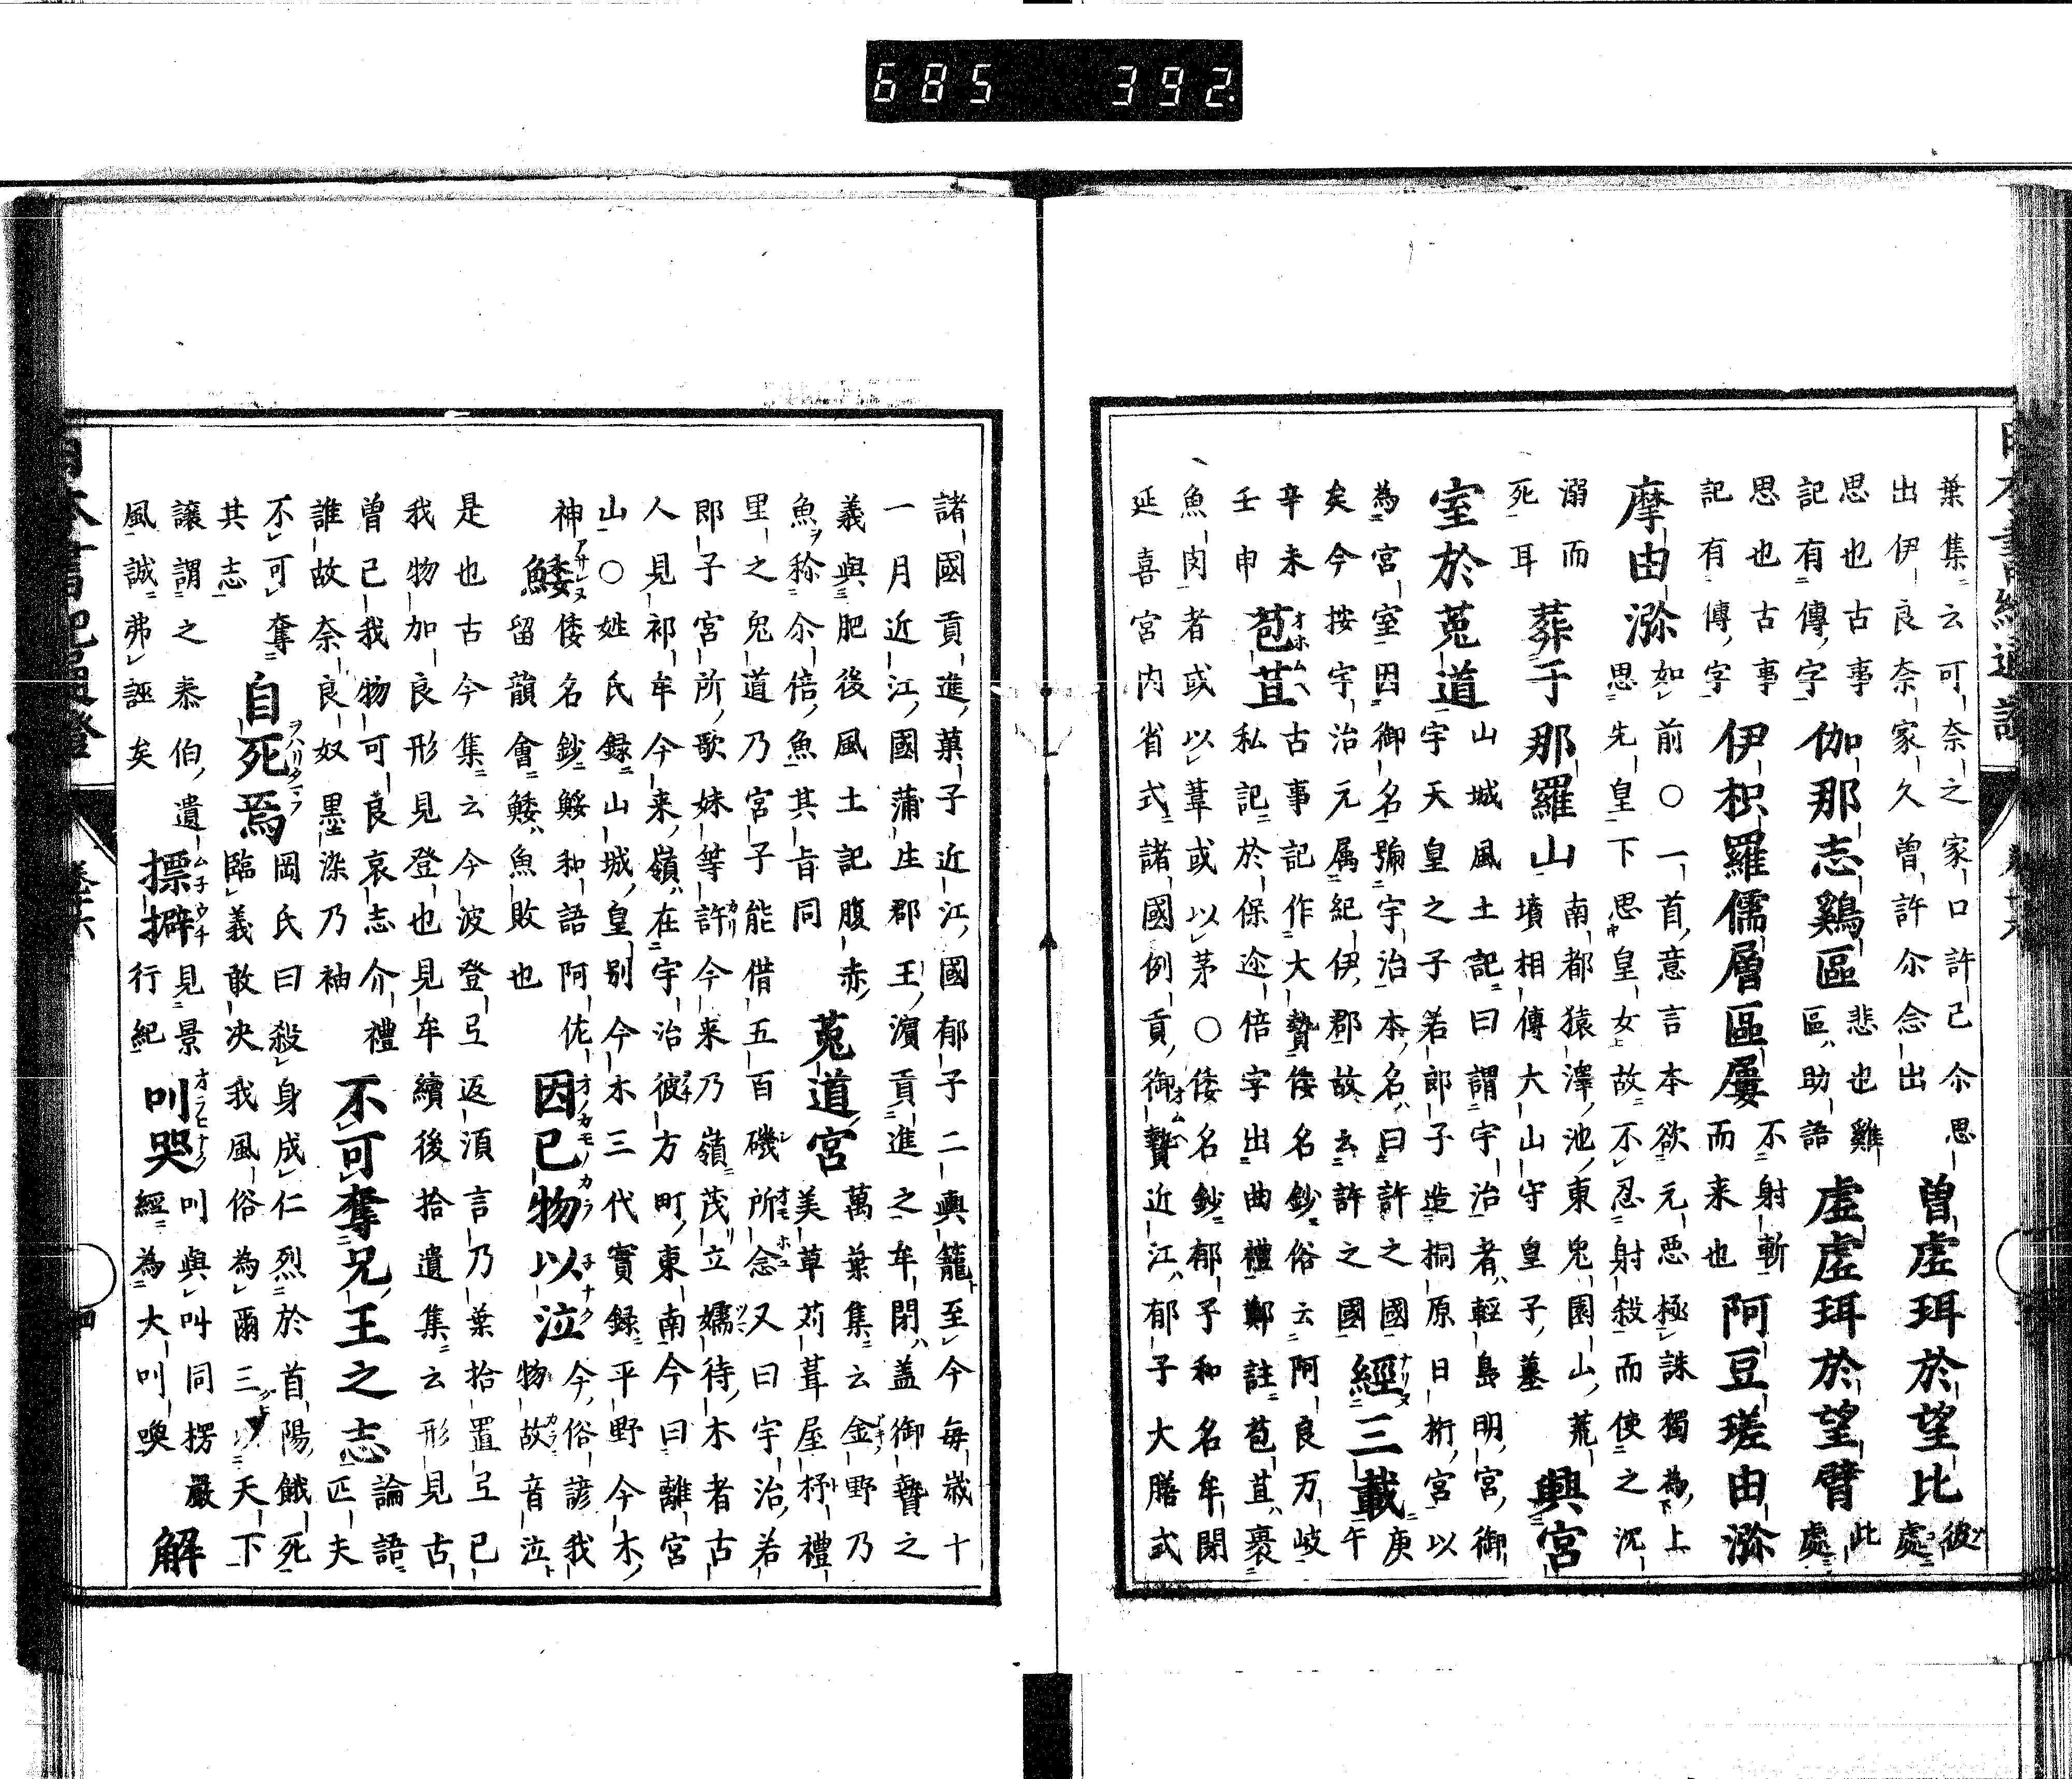 685 392
葉集云可奈之家口許己尓思
出伊良奈家久曽許尓念出
曽虛虛珥於望比
彼處
思也古事
記有傳字
伽那志鷄區
悲也雞
區助語
虛虛珥於望臂
此處
思也古事
記有傳字
伊枳羅儒層區屢
不射斬
而来也
阿豆瑳由瀰
摩由瀰
如前○一首意言本欲元惡極誅獨為上
思先皇下思皇女故不忍射殺而使之沉
溺而
死耳
葬于那羅山
南都猿澤池東兎園山荒
墳相傳大山守皇子墓
興宮
室於菟道
山城風土記曰謂宇治者輕島明宮御
宇天皇之子若郎子造桐原日桁宮以
為宮室因御名號宇治本名曰許之國
矣今按宇治元属紀伊郡故云許之國
經三載
庚午
辛未
壬申
苞苴
古事記作大贄倭名鈔俗云阿良万岐
私記於保迩倍字出曲禮鄭註苞苴裹
魚肉者或以葦或以茅○倭名鈔郁子和名牟閇
延喜宮内省式諸國例貢御贄近江郁子大膳式
諸國貢進菓子近江國郁子二輿籠至今毎歳十
一月近江國蒲生郡王濱貢進之牟閇盖御贄之
義與肥後風土記腹赤
魚稱尓倍魚其旨同
菟道宮
萬葉集云金野乃
美草苅葺屋杼禮
里之兎道乃宮子能借五百礒所念又曰宇治若
郎子宮所歌妹等許今来乃嶺茂立嬬待木者古
人見祁牟今来嶺在宇治彼方町東南今曰離宮
山○姓氏録山城皇别今木三代實録平野今木
神
鯘
倭名鈔鮾和語阿佐
留韻會鯘魚敗也
因已物以泣
今俗諺我
物故音泣
是也古今集云今波登弖返湏言乃葉拾置弖已
我物加良形見登也見牟續後拾遺集云形見古
曽已我物可良哀志介禮
誰故奈良奴墨染乃袖
不可奪兄王之志
論語
匹夫
不可奪
其志
自死焉
岡氏曰殺身成仁烈於首陽餓死
臨義敢决我風俗為爾三以天下
讓謂之泰伯遺
風誠弗誣矣
摽擗
見景
行紀
叫哭
叫與叫同楞嚴
經為大叫喚
解